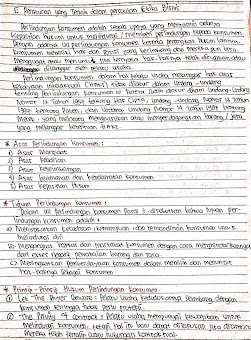 E. Peraturan yang Terkait dalam persoalan Etika Bisnis
Perlindungan konsumen adalah segala upaya yang menjamin adanya
kepastian hukum untuk melindungi / memberi perlindungan kepada konsumen.
dengan adanya UU perlindungan konsumen beserta perangkat hukum lainnya,
konsumen memiliki hak dan posisi yang berimbang dan mereka pun bisa
menggugat atau menuntut jika ternyata hak-haknya telah dirugikan atau
dilanggar oleh pelaku usaha.
Perlindungan konsumen dalam hal pelaku usaha melanggar hak atas
kekayaan intelektual (HAKI) tidak diatur dalam Undang-Undang
Perlindungan konsumen ini karena sudah diatur dalam Undang-Undang
Nomor
Nomor 13 Tahun 1997 tentang Paten, dan Undang-Undang Nomor 14 Tahun 1997 tentang
Merek, yang melarang menghasilkan atau memperdagangkan barang / jasa
yang melanggar ketentuan HAKI.
* Asas Perlindungan Konsumen :
1) Asas Manfaat
2) Asas Keadilan
3) Asas Keseimbangan
4) Asas Keamanan dan Keselamatan Konsumen
5) Asas Kepastian Hukum
* Tujuan Perlindungan Konsumen :
Dalam UU Perlindungan Konsumen Pasal 3 disebutkan bahwa tujuan per-
lindungan konsumen adalah :
a) Meningkatkan kesadaran, kemampuan dan kemandirian konsumen untuk
melindungi diri
b) Mengangkat harkat dan martabat konsumen dengan cara menghindarkannya
dari ekses negatif pemakaian barang dan jasa.
c) Meningkatkan pemberdayaan konsumen dalam memilih dan menuntut
hak-haknya sebagai konsumen
* Prinsip-Prinsip Hukum Perlindungan Konsumen :
① Let The Buyer Beware : Pelaku usaha kedudukannya seimbang dengan
konsumen sehingga tidak perlu proteksi.
② The Privity of Contract : Pelaku usaha mempunyai kewajiban untuk
melindungi konsumen, tetapi hal ini baru dapat dilakukan jika diantara
mereka telah terjalin suatu hubungan kontraktual.